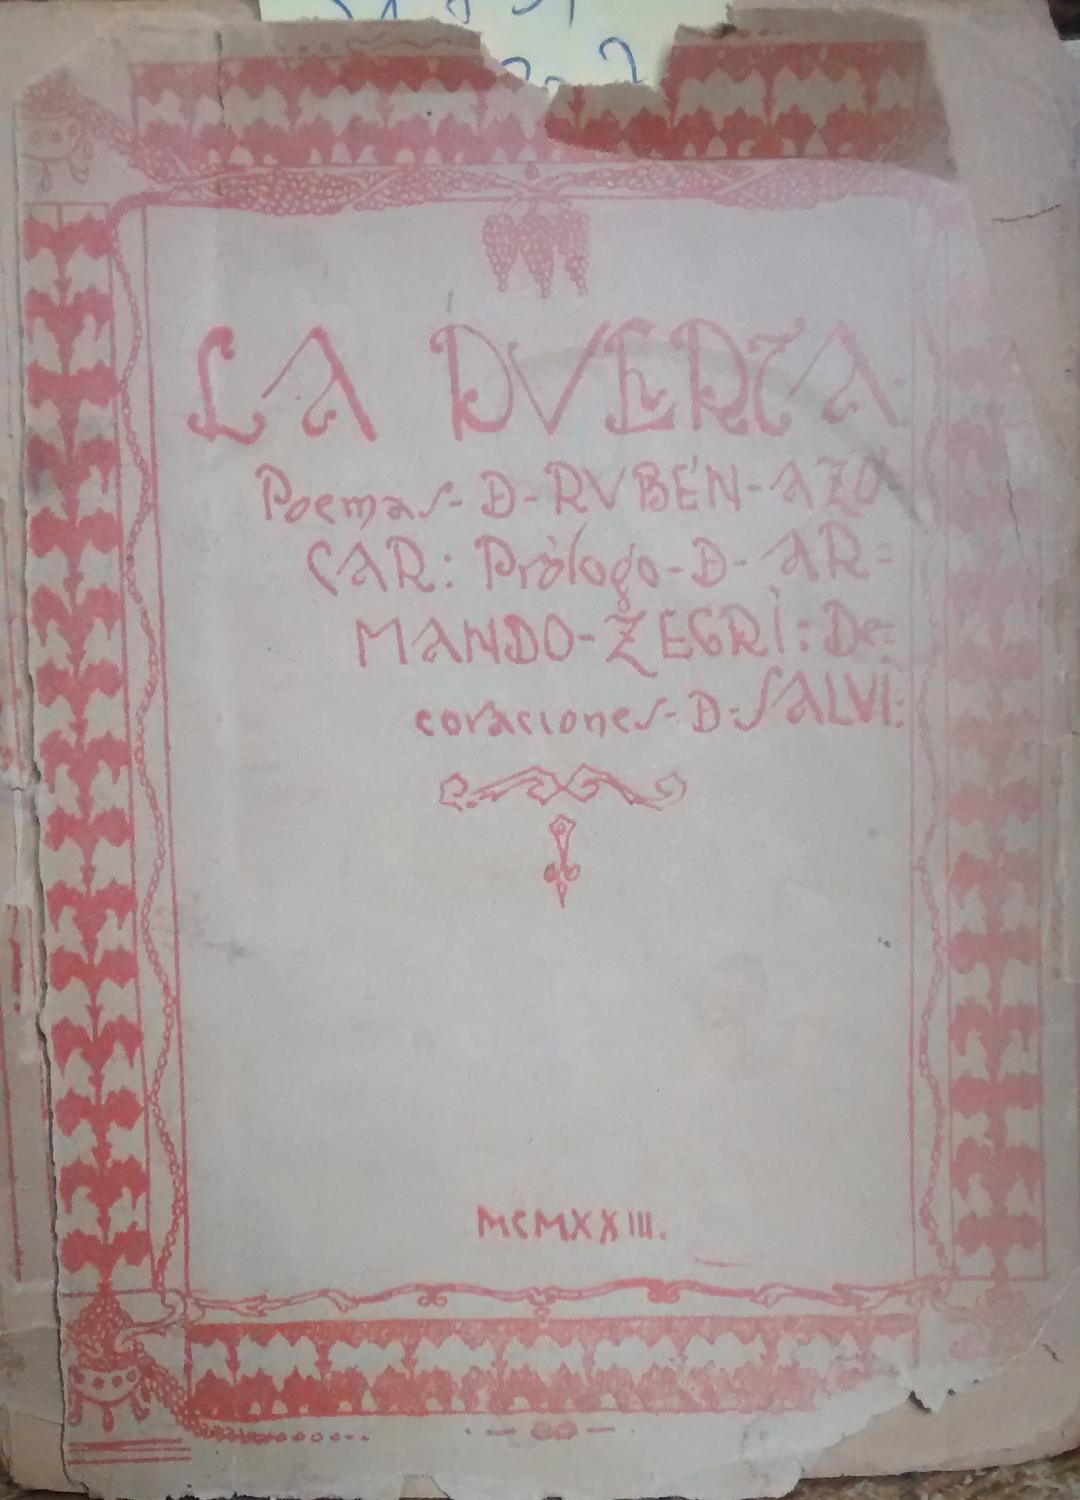 LA PVERTA
Poemas - D - RVBÉN - AZÓ
CAR: Prólogo - D - AR=
MANDO - ZEGRÍ: De=
coraciones - D - SALVI:
MCMXXIII.